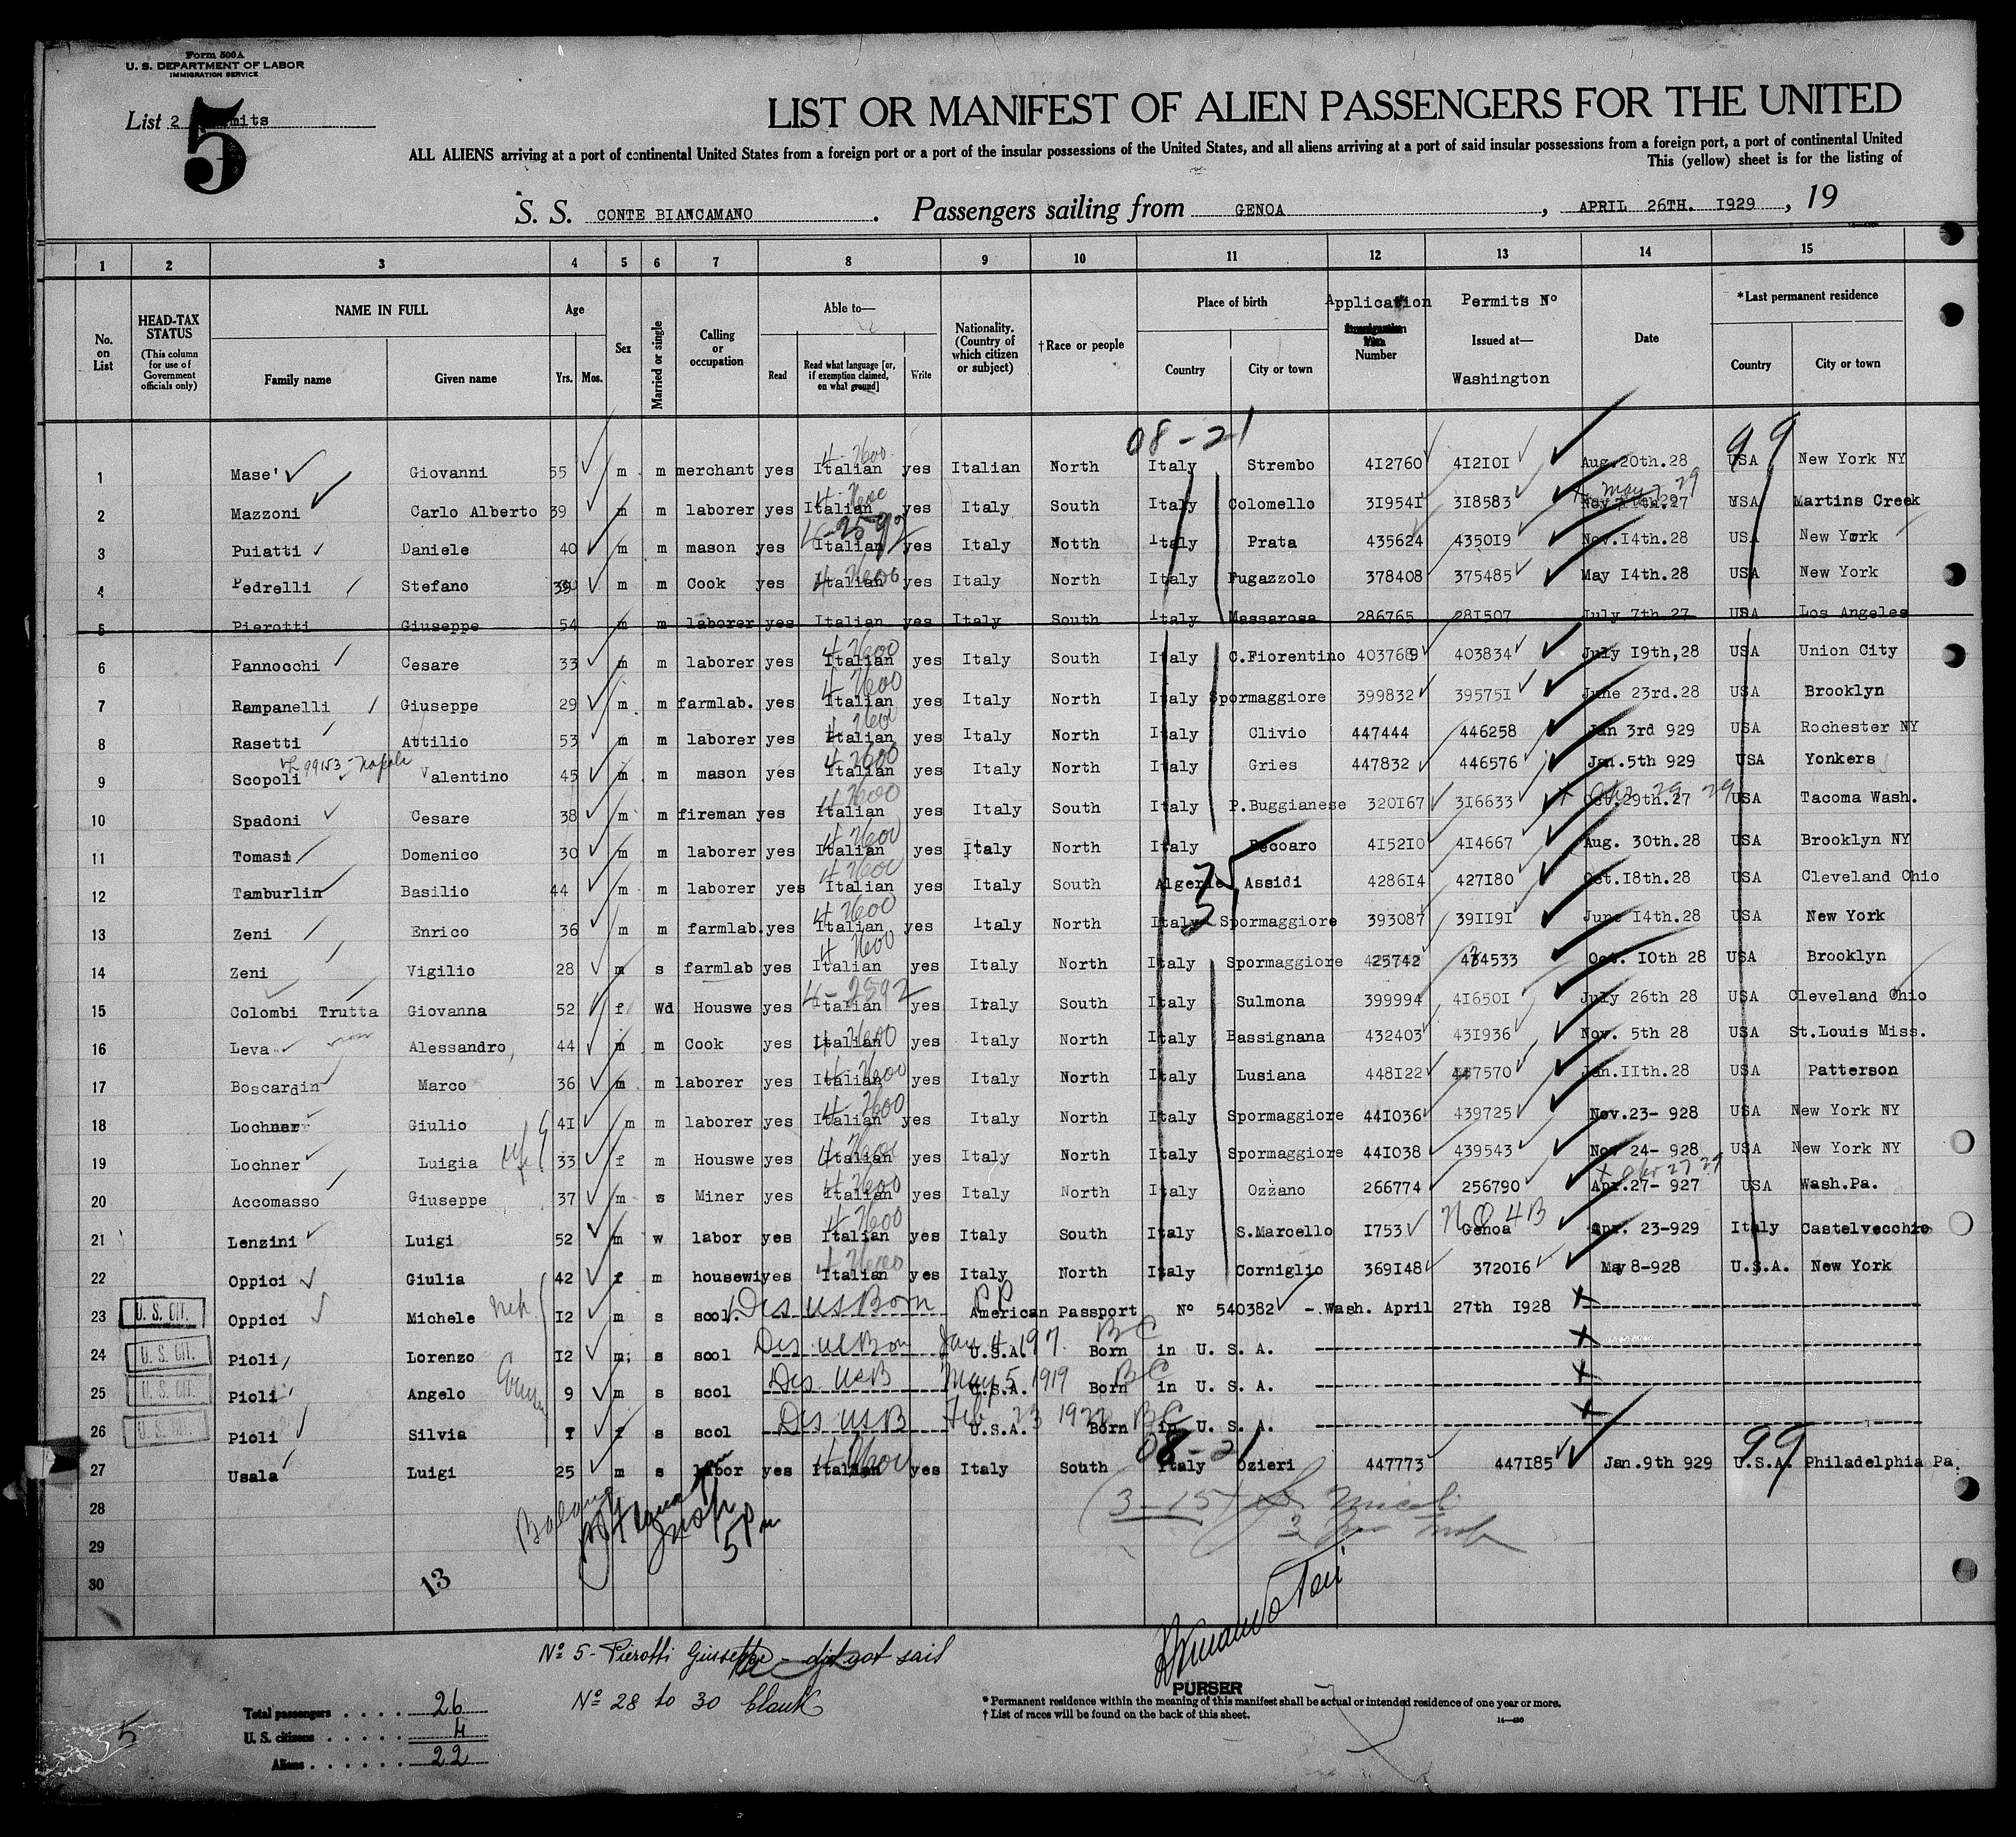 Form 500A
U. S. DEPARTMENT OF LABOR
IMMIGRATION SERVICE
List 2 5
LIST OR MANIFEST OF ALIEN PASSENGERS FOR THE UNITED
ALL ALIENS arriving at a port of continental United States from a foreign port or a port of the insular possessions of the United States, and all aliens arriving at a port of said insular possessions from a foreign port, a port of continental United
This (yellow) sheet is for the listing of
S. S. CONTE BIANCAMANO . Passengers sailing from GENOA , APRIL 26TH. 1929 , 19
1 2 3 4 5 6 7 8 9 10 11 12 13 14 15
No. on List
HEAD-TAX STATUS (This column for use of Government officials only)
NAME IN FULL
Family name Given name
Age
Yrs. Mos.
Sex
Married or single
Calling or occupation
Able to—
Read Read what language [or, if exemption claimed, on what ground] Write
Nationality. (Country of which citizen or subject)
†Race or people
Place of birth
Country City or town
Application Number
Permits No Issued at— Washington
Date
*Last permanent residence
Country City or town
08-21 99
1 Mase' Giovanni 55 m m merchant yes Italian yes Italian North Italy Strembo 412760 412101 Aug.20th.28 USA New York NY
2 Mazzoni Carlo Alberto 39 m m laborer yes Italian yes Italy South Italy Colomello 319541 318583 USA Martins Creek
3 Puiatti Daniele 40 m m mason yes Italian yes Italy Notth Italy Prata 435624 435019 Nov.14th.28 USA New York
4 Pedrelli Stefano 39 m m Cook yes Italian yes Italy North Italy Fugazzolo 378408 375485 May 14th.28 USA New York
5 Pierotti Giuseppe 54 m m laborer yes Italian yes Italy South Italy Massarosa 286765 281507 July 7th 27 USA Los Angeles
6 Pannocchi Cesare 33 m m laborer yes Italian yes Italy South Italy C.Fiorentino 403769 403834 July 19th,28 USA Union City
7 Rampanelli Giuseppe 29 m m farmlab. yes Italian yes Italy North Italy Spormaggiore 399832 395751 June 23rd.28 USA Brooklyn
8 Rasetti Attilio 53 m m laborer yes Italian yes Italy North Italy Clivio 447444 446258 Jan 3rd 929 USA Rochester NY
9 Scopoli Valentino 45 m m mason yes Italian yes Italy North Italy Gries 447832 446576 Jan.5th 929 USA Yonkers
10 Spadoni Cesare 38 m m fireman yes Italian yes Italy South Italy P.Buggianese 320167 316633 Oct.29th.27 USA Tacoma Wash.
11 Tomasi Domenico 30 m m laborer yes Italian yes Italy North Italy Recoaro 415210 414667 Aug. 30th.28 USA Brooklyn NY
12 Tamburlin Basilio 44 m m laborer yes Italian yes Italy South Algerie Assidi 428614 427180 Oct.18th.28 USA Cleveland Ohio
13 Zeni Enrico 36 m m farmlab. yes Italian yes Italy North Italy Spormaggiore 393087 391191 June 14th.28 USA New York
14 Zeni Vigilio 28 m s farmlab yes Italian yes Italy North Italy Spormaggiore 425742 434533 Oct. 10th 28 USA Brooklyn
15 Colombi Trutta Giovanna 52 f Wd Houswe yes Italian yes Italy South Italy Sulmona 399994 416501 July 26th 28 USA Cleveland Ohio
16 Leva Alessandro 44 m m Cook yes Italian yes Italy North Italy Bassignana 432403 431936 Nov. 5th 28 USA St.Louis Miss.
17 Boscardin Marco 36 m m laborer yes Italian yes Italy North Italy Lusiana 448122 447570 Jan.11th.28 USA Patterson
18 Lochner Giulio 41 m m laborer yes Italian yes Italy North Italy Spormaggiore 441036 439725 Nov.23- 928 USA New York NY
19 Lochner Luigia 33 f m Houswe yes Italian yes Italy North Italy Spormaggiore 441038 439543 Nov 24- 928 USA New York NY
20 Accomasso Giuseppe 37 m s Miner yes Italian yes Italy North Italy Ozzano 266774 256790 Apr.27- 927 USA Wash.Pa.
21 Lenzini Luigi 52 m w labor yes Italian yes Italy South Italy S.Marcello 1753 Genoa Apr. 23-929 Italy Castelvecchio
22 Oppici Giulia 42 f m housewi yes Italian yes Italy North Italy Corniglio 369148 372016 May 8-928 U.S.A. New York
23 U. S. CIT. Oppici Michele 12 m s scol. American Passport No 540382 - Wash. April 27th 1928
24 U. S. CIT. Pioli Lorenzo 12 m; s scol U.S.A. Born in U. S. A.
25 U. S. CIT. Pioli Angelo 9 m s scol May 5 1919 U.S.A. Born in U. S. A.
26 U. S. CIT. Pioli Silvia f s scol U.S.A. Born in U. S. A.
08-21 99
27 Usala Luigi 25 m s labor yes Italian yes Italy South Italy Ozieri 447773 447185 Jan.9th 929 U.S.A. Philadelphia Pa.
28
29
30
13
No 5- Pierotti Giuseppe - did not sail
No 28 to 30 blank
PURSER
* Permanent residence within the meaning of this manifest shall be actual or intended residence of one year or more.
† List of races will be found on the back of this sheet.
Total passengers . . . . 26
U. S. citizens . . . . . 4
Aliens . . . . . . 22
5